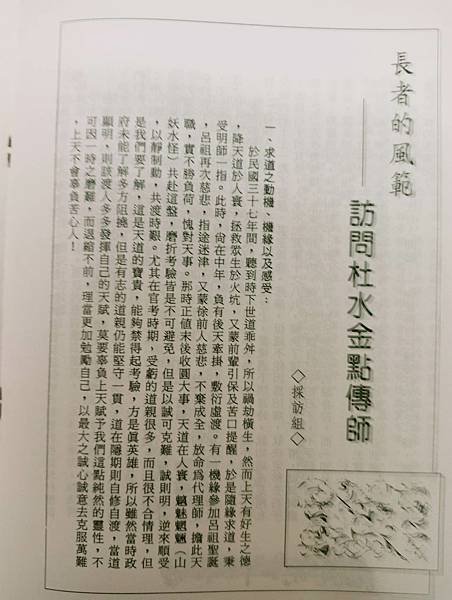 長者的風範
——訪問杜水金點傳師
◇採訪組◇
一、求道之動機、機緣以及感受：
於民國三十七年間，聽到時下世道乖舛，所以禍劫橫生，然而上天有好生之德
，降天道於人寰，拯救眾生於火坑，又蒙前輩引保及苦口提醒，於是隨緣求道，秉
受明師一指。此時，尚在中年，負有後天牽掛，敷衍虛渡。有一機緣參加呂祖聖誕
，呂祖再次慈悲，指途迷津，又蒙徐前人慈悲，不棄成全，放命爲代理師，擔此天
職，實不勝負荷，愧對天事。那時正値末後收圓大事，天道在人寰，魑魅魍魎（山
妖水怪）共赴這盤，磨折考驗皆是不可避免，但是以誠可克難，誠則明，逆來順受
，以靜制動，共渡時艱。尤其在官考時期，受虧的道親很多，而且很不合情理，但
是我們要了解，這是天道的寶貴，能夠禁得起考驗，方是眞英雄，所以雖然當時政
府未能了解多方阻撓，但是有志的道親仍能堅守一貫，道在隱期則自修自渡，當道
顯明，則該渡人多多發揮自己的天賦，莫要辜負上天賦予我們這點純然的靈性，不
可因一時之磨難，而退縮不前，理當更加勉勵自己，以最大之誠心誠意去克服萬難
，上天不會辜負苦心人！